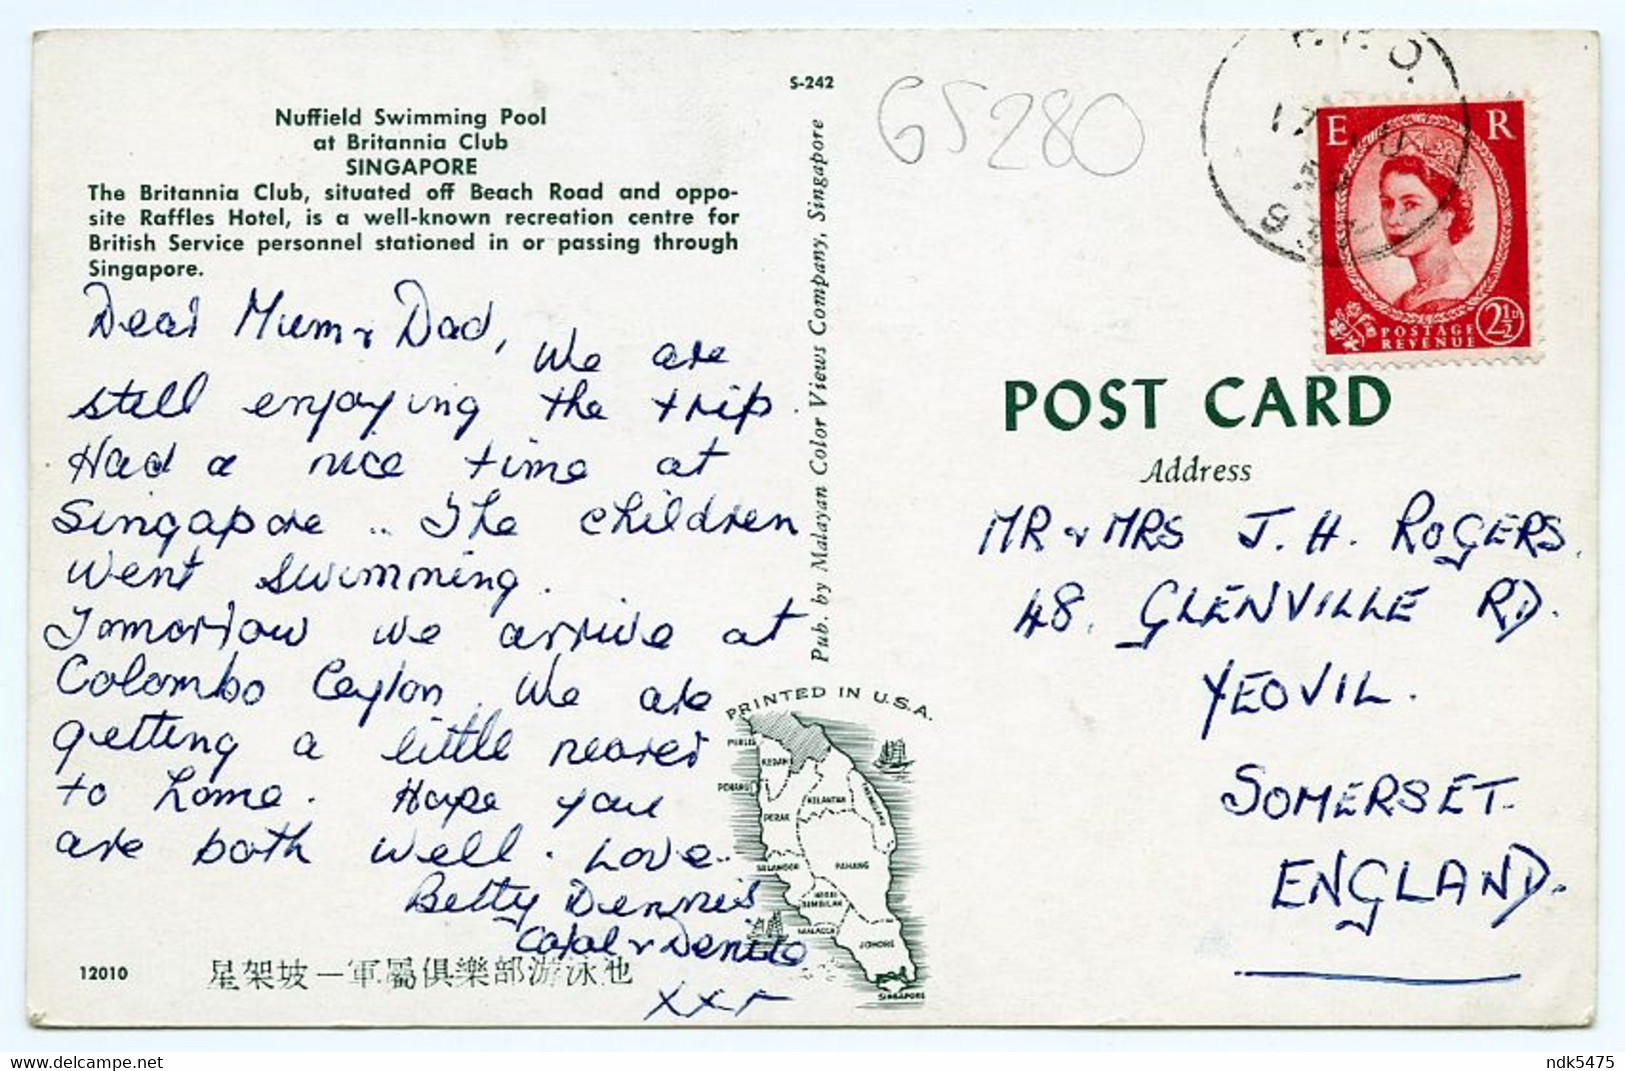 S-242
Nuffield Swimming Pool
at Britannia Club
SINGAPORE
The Britannia Club, situated off Beach Road and oppo-
site Raffles Hotel, is a well-known recreation centre for
British Service personnel stationed in or passing through
Singapore.
Dear Mum & Dad, We are
still enjoying the trip.
Had a nice time at
Singapore .. The children
went swimming.
Tomorrow we arrive at
Colombo Ceylon. We are
getting a little nearer
to home. Hope you
are both well. Love..
Betty Dennis
Carol & Denise
xxx
12010
星架坡一軍屬俱樂部游泳池
Pub. by Malayan Color Views Company, Singapore
PRINTED IN U.S.A.
PERLIS
KEDAH
PENANG
KELANTAN
TRENGGANU
PERAK
PAHANG
SELANGOR
NEGRI
SEMBILAN
MALACCA
JOHORE
SINGAPORE
GS280
E R
POSTAGE
REVENUE
2½D
POST CARD
Address
MR & MRS J. H. ROGERS.
48. GLENVILLE RD.
YEOVIL.
SOMERSET.
ENGLAND.
the-velvet-rocket.delcampe.net
ndk5475